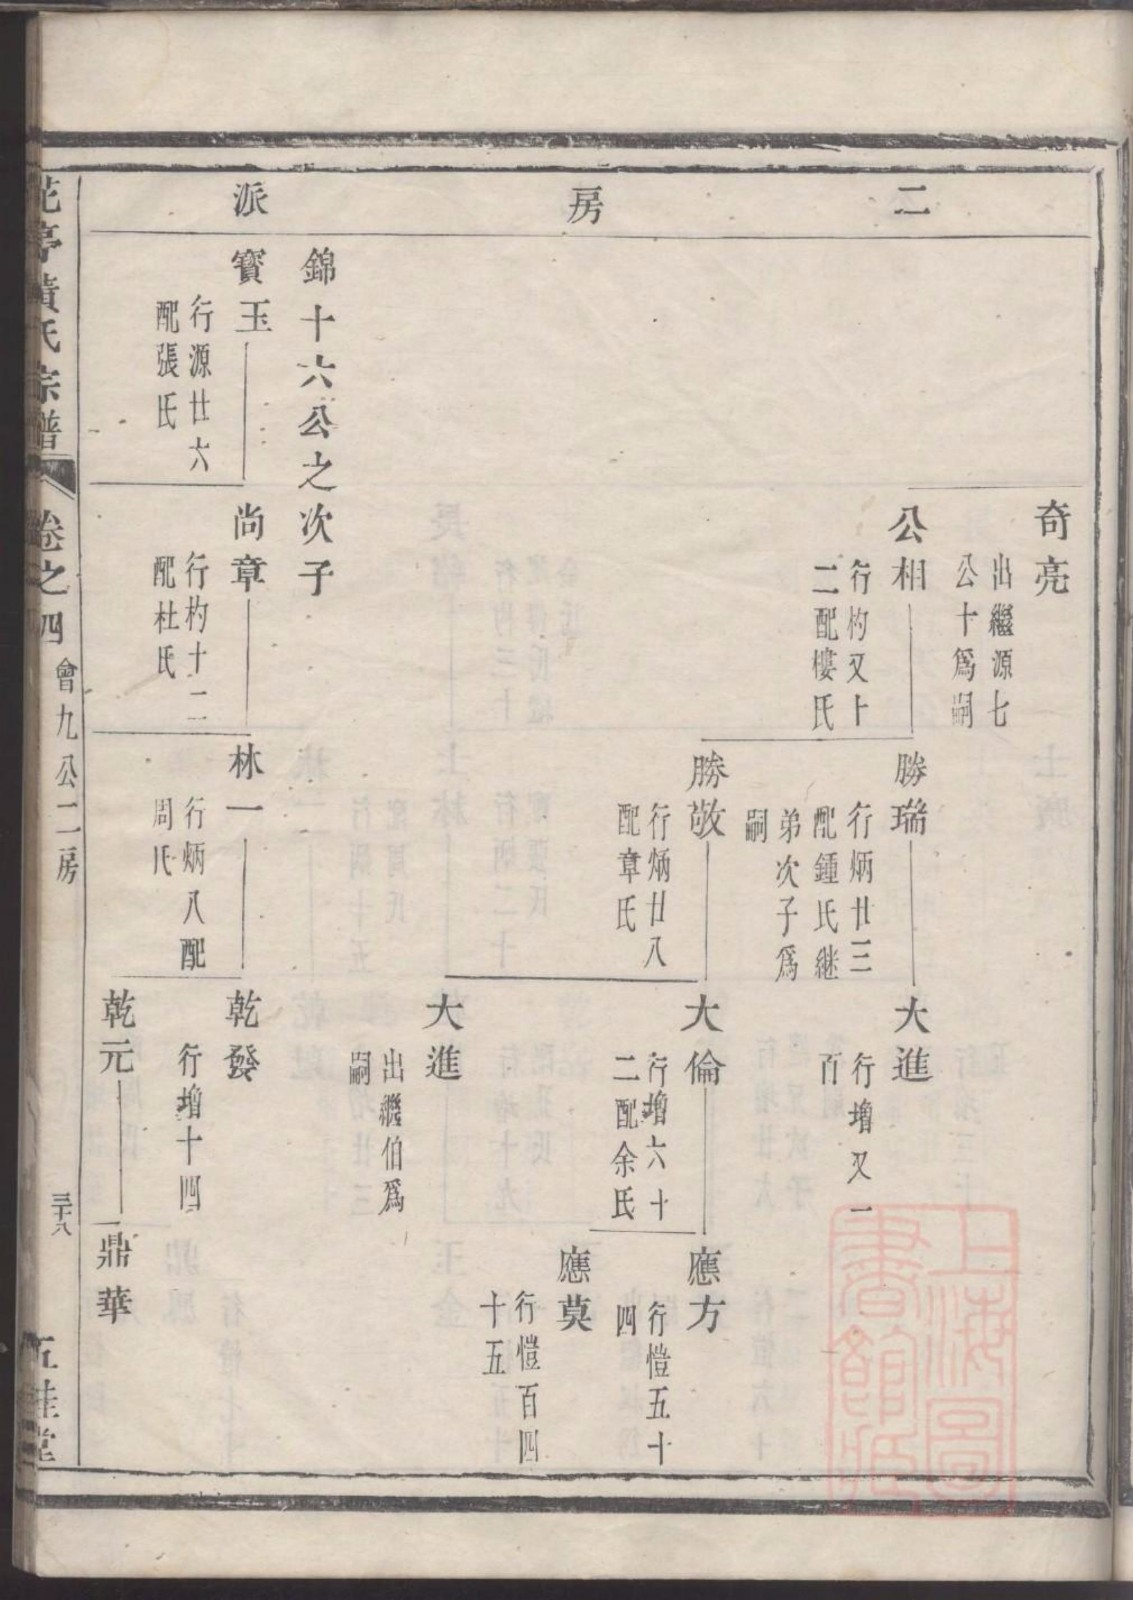 二房派
奇亮
出繼源七
公十為嗣
公相
行杓又十
二配樓氏
勝瑞
行炳廿三
配鍾氏継
弟次子為
嗣
大進
行增又一
百
勝敬
行炳廿八
配章氏
大倫
行增六十
二配余氏
應方
行愷五十
四
應莫
行愷百四
十五
大進
出繼伯為
嗣
錦十六公之次子
寶玉
行源廿六
配張氏
尚章
行杓十二
配杜氏
林一
行炳八配
周氏
乾發
行增十四
乾元
鼎華
花亭黄氏宗譜
卷之四
會九公二房
三十八
五桂堂
上海圖
書館藏